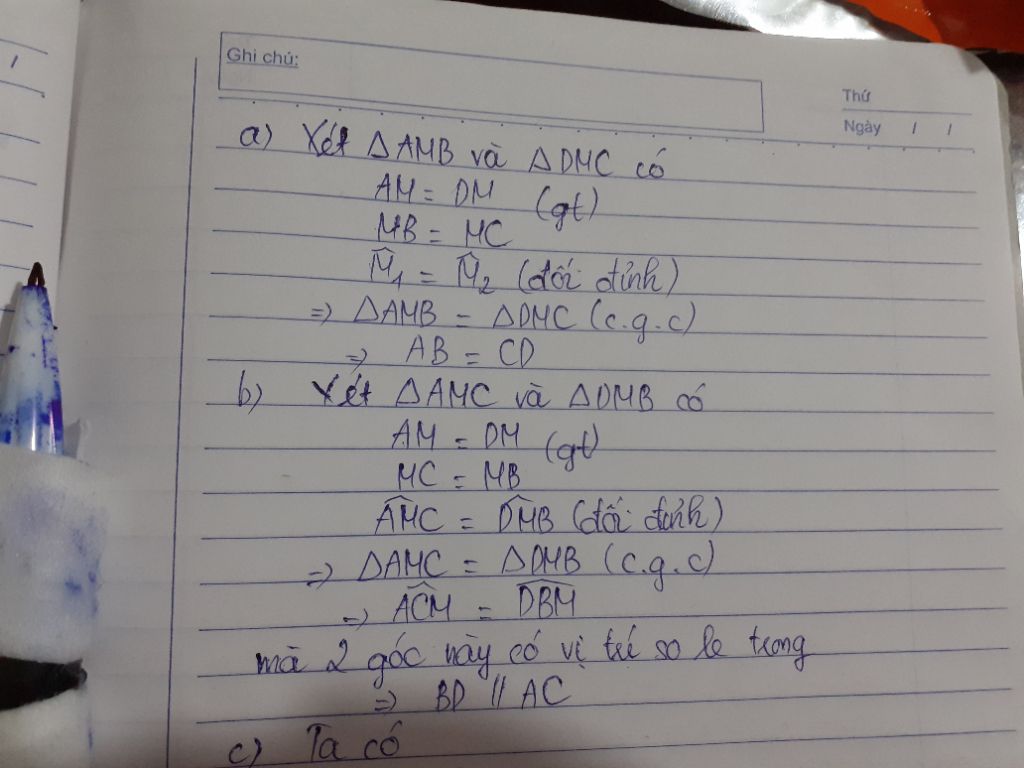 Ghi chú:
Thứ
Ngày / /
a) Xét ΔAMB và ΔDMC có
AM = DM (gt)
MB = MC
M̂₁ = M̂₂ (đối đỉnh)
=> ΔAMB = ΔDMC (c.g.c)
=> AB = CD
b) Xét ΔAMC và ΔDMB có
AM = DM (gt)
MC = MB
AM̂C = DM̂B (đối đỉnh)
=> ΔAMC = ΔDMB (c.g.c)
=> AĈM = DB̂M
mà 2 góc này có vị trí so le trong
=> BD // AC
c) Ta có